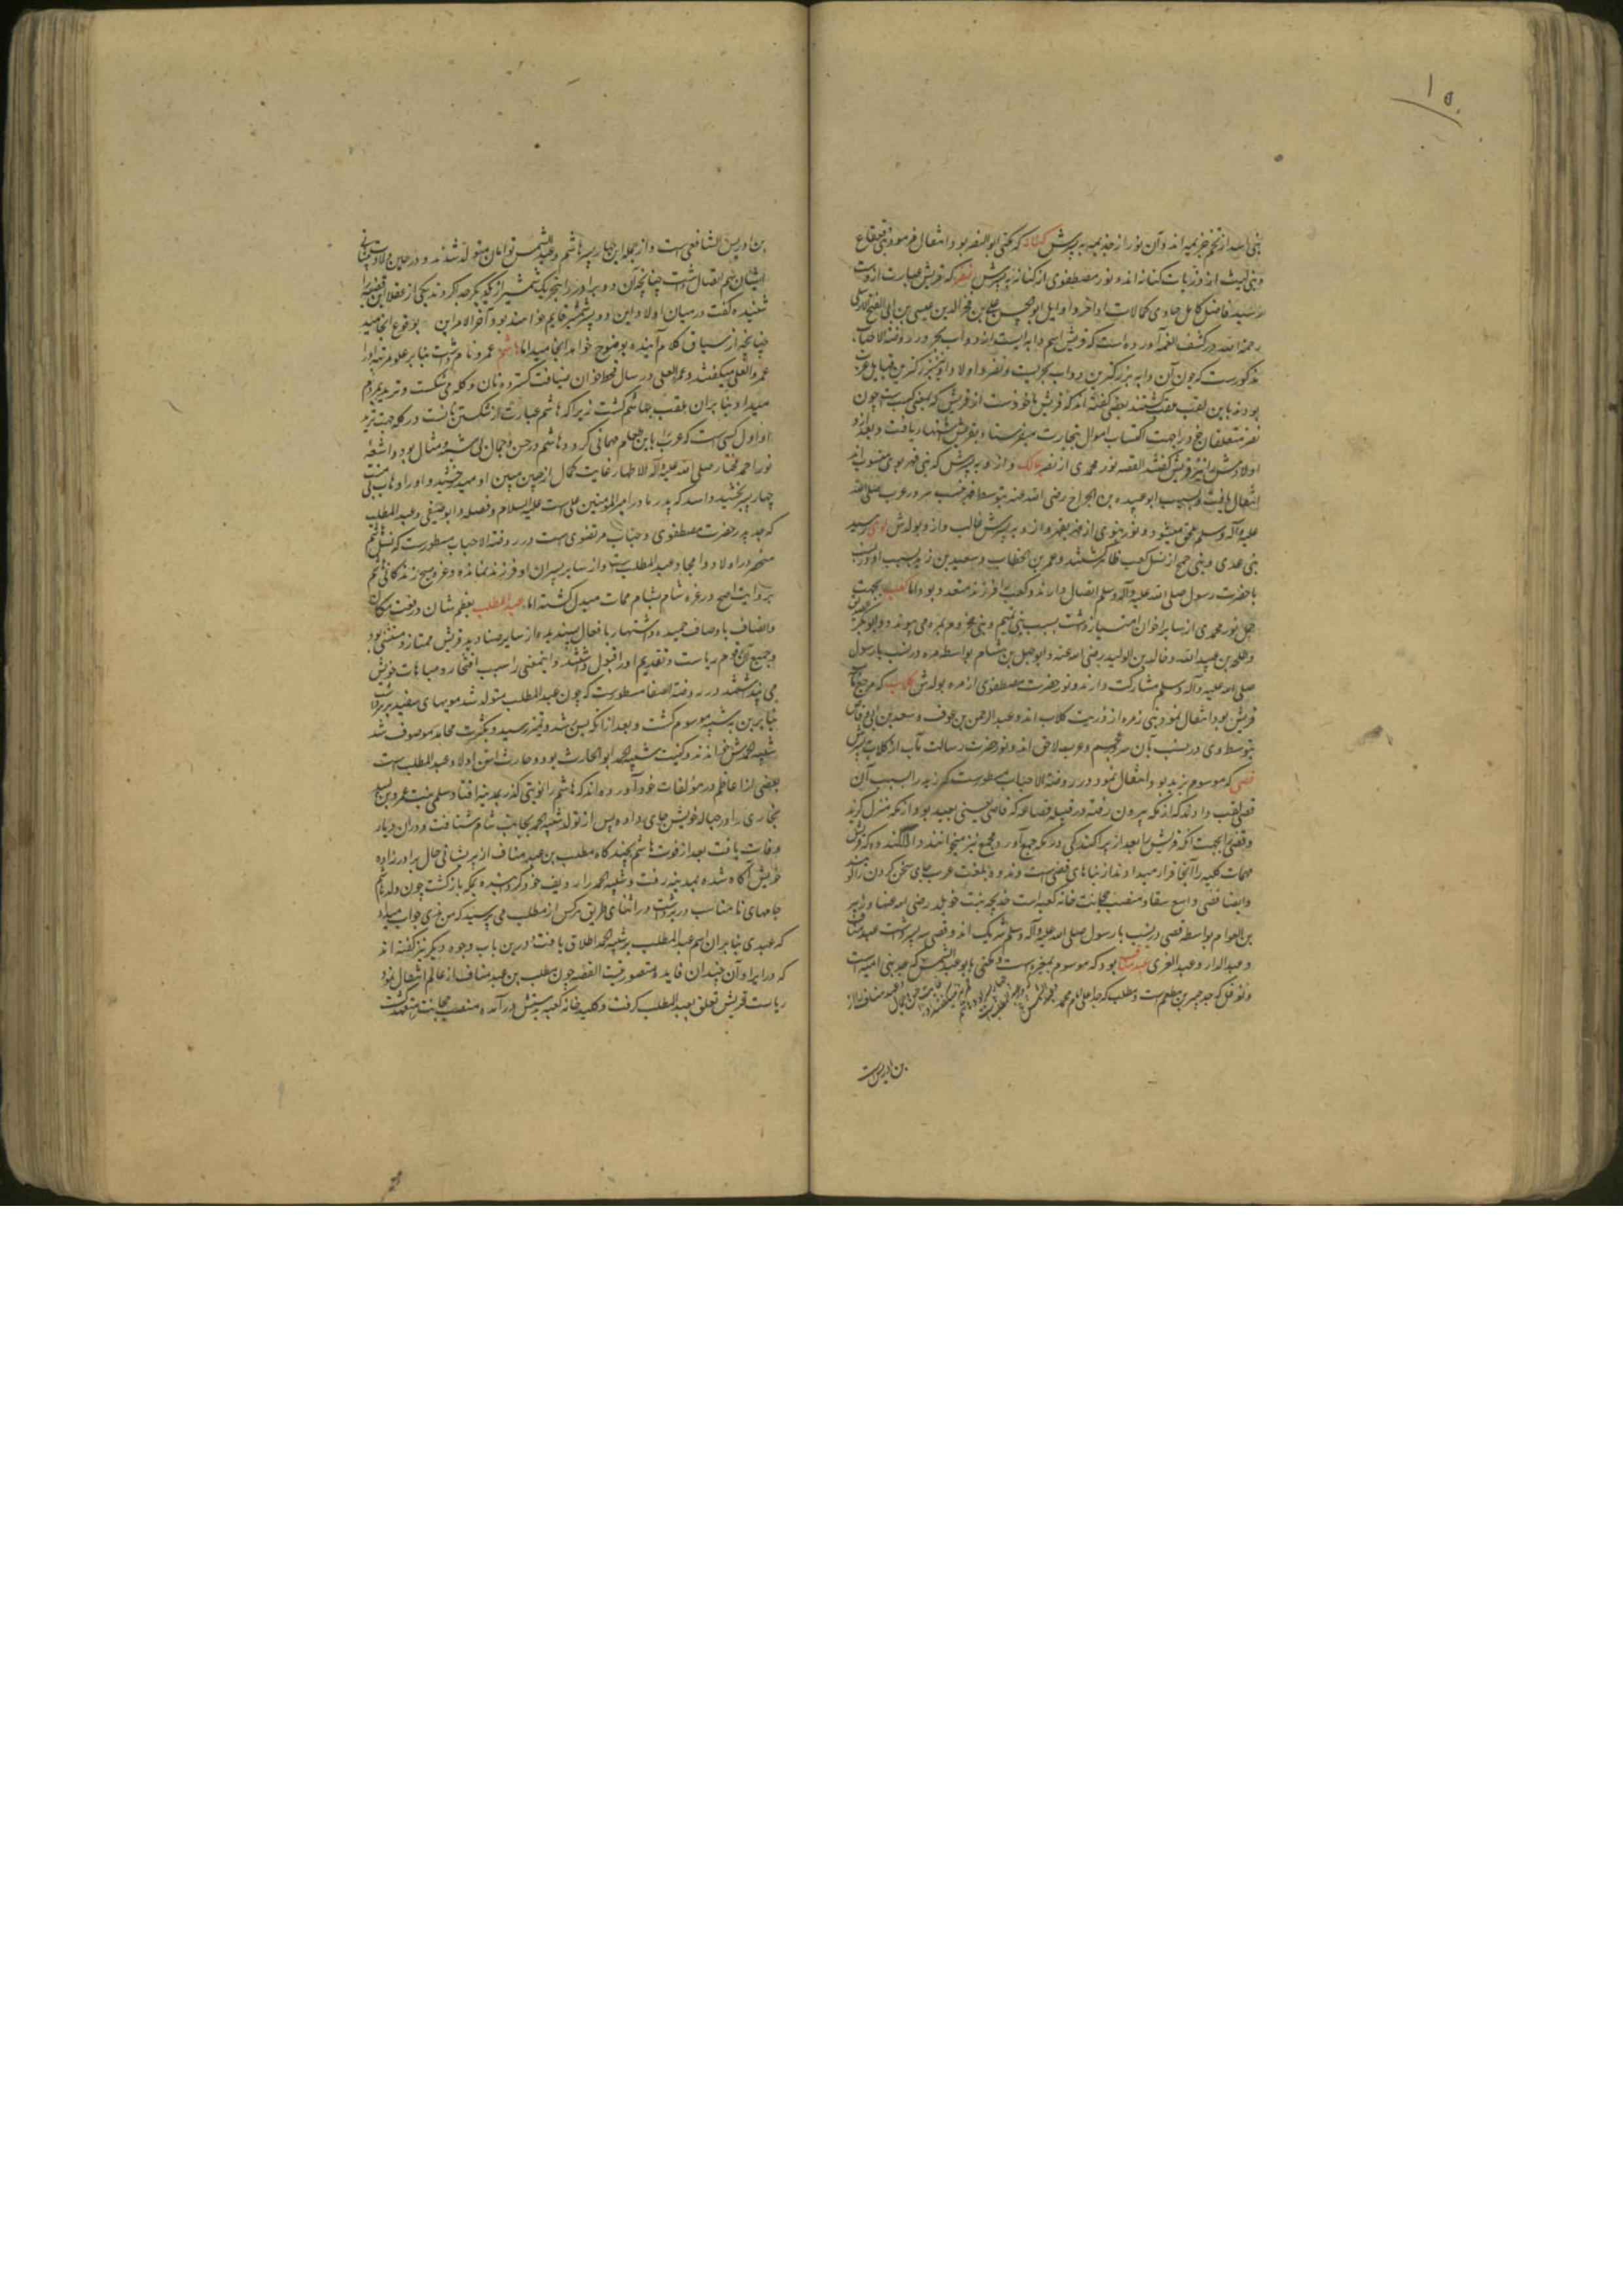 ۱۵۰
بنی اسد از تخم خزیمه اند و آن نور از خزیمه به پسرش کنانه که مکنی ابو النضر بود انتقال فرمود و بنی
و بنی لیث از ذریات کنانه اند و نور مصطفوی از کنانه به پسرش نضر که قریش عبارت از وست
رسید فاضل کامل حاوی کمالات اواخر و اوایل ابو الحسن علی بن فخر الدین عیسی بن ابی الفتح الاربلی
رحمه الله در کشف الغمه آورده است که قریش اسم دابه ایست از دواب بحر و در روضة الاحباب
مذکورست که چون آن دابه بزرگترین دواب بحریست و نضر و اولاد او نیز بزرگترین قبایل عرب
بودند باین لقب ملقب گشتند بعضی گفته اند که قریش ماخوذست از قرش که بمعنی کسب است چون
نضر متعلقان خود را جهت اکتساب اموال بتجارت میفرستاد بقریش اشتهار یافت و بعد از و
اولادش را نیز قریش گفتند القصه نور محمدی از نضر بمالک و از و به پسرش که بنی فهر بوی منسوب اند
انتقال یافت و نسب ابو عبیده بن الجراح رضی الله عنه بتوسط فهر بنسب سرور عرب صلی الله
علیه وآله وسلم ملحق میشود و نور نبوی از فهر و از و به پسرش غالب و از و بولدش لوی رسید
بنی عدی و بنی جمح از نسل کعب ظاهر گشتند و عمر بن الخطاب و سعید بن زید بسبب او در نسب
با حضرت رسول صلی الله علیه وآله وسلم اتصال دارند و کعب را فرزند متعدد بود اما کعب بجهت
حمل نور محمدی از سایر اخوان امتیاز داشت بسبب بنی تیم و بنی مخزوم بمره می پیوندد و ابوبکر
و طلحه بن عبید الله و خالد بن الولید رضی الله عنه و ابو جهل بن هشام بواسطه مره در نسب با رسول
صلی الله علیه وآله وسلم مشارکت دارند و نور حضرت مصطفوی از مره بولدش کلاب که مرجع
قریش بود انتقال نمود و بنی زهره از ذریت کلاب اند و عبد الرحمن بن عوف و سعد بن ابی وقاص
بتوسط وی در نسب بآن سرور عجم و عرب لاحق اند و نور حضرت رسالت مآب از کلاب به پسرش
قصی که موسوم بزید بود انتقال نمود و در روضة الاحباب مسطورست که زید را بسبب آن
قصی لقب دادند که از مکه بیرون رفته در قبیله قضاعه که قاصی یعنی بعید بود از مکه منزل گزید
و قصی را بجهت آنکه قریش را بعد از پراکندگی در مکه جمع آورد مجمع نیز میخوانند و دار الندوه که قریش
مهمات کلیه را آنجا قرار میدادند از بناهای قصی است و ندوه بلغت عرب جای سخن کردن را گویند
وایضا قصی واضع سقاء و منصب حجابت خانه کعبه است خدیجه بنت خویلد رضی الله عنها و زبیر
بن العوام بواسطه قصی در نسب با رسول صلی الله علیه وآله وسلم شریک اند و قصی سه پسر داشت عبد مناف
و عبد الدار و عبد العزی عبد مناف بود که موسوم بمغیره است و مکنی بابو عبد الشمس که جد بنی امیه است
و نوفل که جد جبیر بن مطعم است و مطلب که جد اعلی امام محمد
بن ادریس است
بن ادریس الشافعی است و از جمله این چهار پسر هاشم و عبد الشمس توامان متولد شدند و در حین ولادت پیشانی
ایشان بهم اتصال داشت چنانچه آن دو برادر را بیک شمشیر از یکدیگر جدا کردند یکی از عقلا این قضیه را
شنیده گفت در میان اولاد این دو پسر شمشیر قایم خواهد بود و آخر الامر این بوقوع انجامید
چنانچه از سیاق کلام آینده بوضوح خواهد انجامید اما هاشم عمرو نام داشت بنا بر علو مرتبه او را
عمرو العلی میگفتند و عمرو العلی در سال قحط خوان ضیافت گسترده نان و کله می شکست و ترید بمردم
میداد بنا بر آن ملقب بهاشم گشت زیرا که هاشم عبارت از شکستن نانست در کله جهت ترید
او اول کسی است که عرب را باین طعام مهمانی کرد و هاشم در حسن و جمال بی شبه و مثال بود و اشعه
نور احمد مختار صلی الله علیه وآله الاطهار بغایت کمال از جبین مبین او میدرخشید و او را وهاب بی منت
چهار پسر بخشید اسد که پدر مادر امیر المؤمنین علی است علیه السلام و فضله و ابو صیفی و عبد المطلب
که جد پدر حضرت مصطفوی و جناب مرتضوی است و در روضة الاحباب مسطورست که نسل هاشم
منحصر در اولاد و امجاد عبد المطلب است و از سایر پسران او فرزند نمانده و عز و صبح زندگانی هاشم
بروایت اصح در غزه شام بشام ممات مبدل گشته اما عبد المطلب بعظم شان و رفعت مکان
واتصاف باوصاف حمیده و اشتهار بافعال پسندیده از سایر صنادید قریش ممتاز و مستثنی بود
و جمیع آن قوم ریاست و تقدیم او را قبول داشتند و اینمعنی را سبب افتخار و مباهات خویش
می پنداشتند در روضة الصفا مسطورست که چون عبد المطلب متولد شد مویهای سفید بر سر داشت
بنا برین به شیبه موسوم گشت و بعد از آنکه بسن رشد و تمیز رسید و بکثرت محامد موصوف شد
شیبة الحمدش خواندند و کنیت شیبة الحمد ابو الحارث بود و حارث اسن اولاد عبد المطلب است
بعضی از اعاظم در مؤلفات خود آورده اند که هاشم را نوبتی گذر بمدینه افتاد و سلمی بنت عمرو بن لبید
نجاری را در حباله خویش جای داده پس از تولد شیبة الحمد بجانب شام شتافت و در آن دیار
وفات یافت بعد از فوت هاشم بچند گاه مطلب بن عبد مناف از پریشانی حال برادرزاده
خویش آگاه شده بمدینه رفت و شیبة الحمد را ردیف خود گردانیده بمکه بازگشت چون ولد هاشم
جامهای نامناسب در بر داشت در اثنای طریق هرکس از مطلب می پرسید که من هذی جواب میداد
که عبدی بنا بر آن اسم عبد المطلب بر شیبة الحمد اطلاق یافت و درین باب وجوه دیگر نیز گفته اند
که در ایراد آن چندان فایده متصور نیست القصه چون مطلب بن عبد مناف از عالم انتقال نمود
ریاست قریش تعلق بعبد المطلب گرفت و کلید خانه کعبه بدستش درآمده منصب حجابت